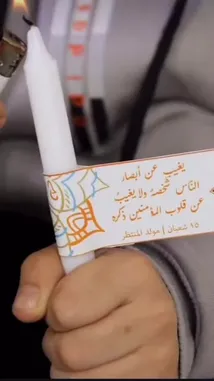 يغيب عن أبصار
الناس شخصه ولا يغيب
عن قلوب المؤمنين ذكره
١٥ شعبان | مولد المنتظر